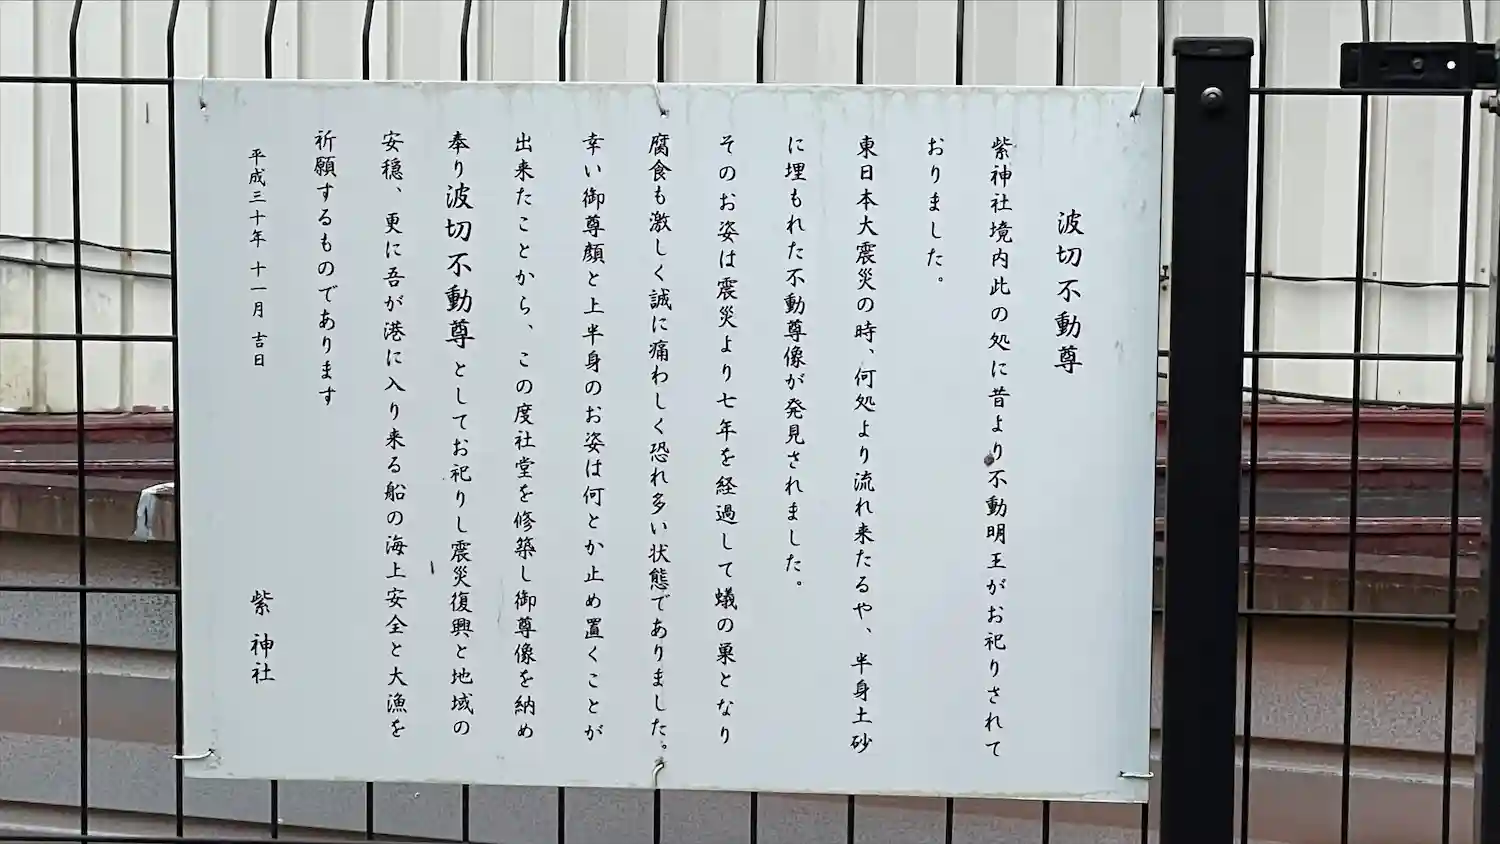 波切不動尊
紫神社境内此の処に昔より不動明王がお祀りされて
おりました。
東日本大震災の時、何処より流れ来たるや、半身土砂
に埋もれた不動尊像が発見されました。
そのお姿は震災より七年を経過して蟻の巣となり
腐食も激しく誠に痛わしく恐れ多い状態でありました。
幸い御尊顔と上半身のお姿は何とか止め置くことが
出来たことから、この度社堂を修築し御尊像を納め
奉り波切不動尊としてお祀りし震災復興と地域の
安穏、更に吾が港に入り来る船の海上安全と大漁を
祈願するものであります
平成三十年 十一月 吉日
紫 神社